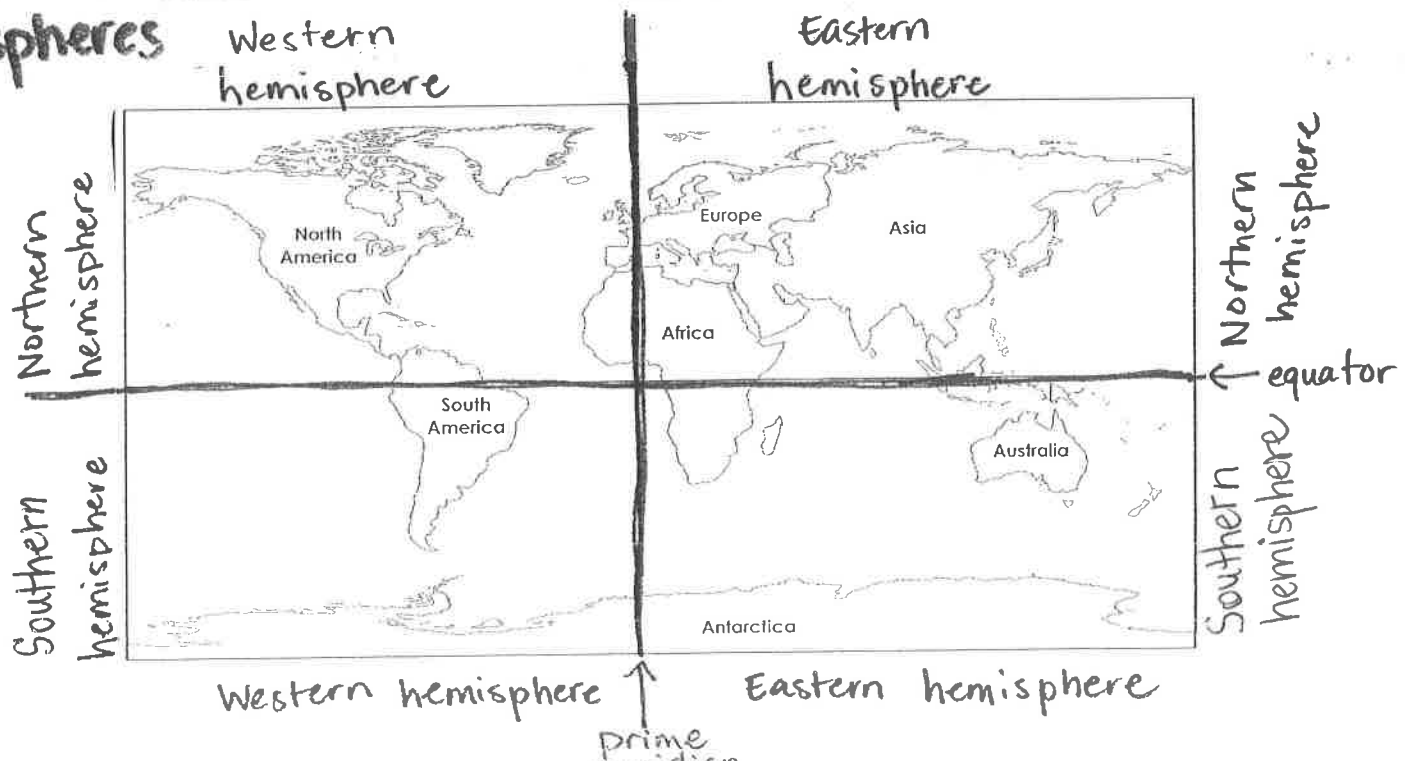 spheres
Western
hemisphere
Eastern
hemisphere
Northern
hemisphere
North
America
Europe
Asia
Africa
Northern
hemisphere
equator
South
America
Australia
Southern
hemisphere
Southern
hemisphere
Antarctica
Western hemisphere
Eastern hemisphere
prime